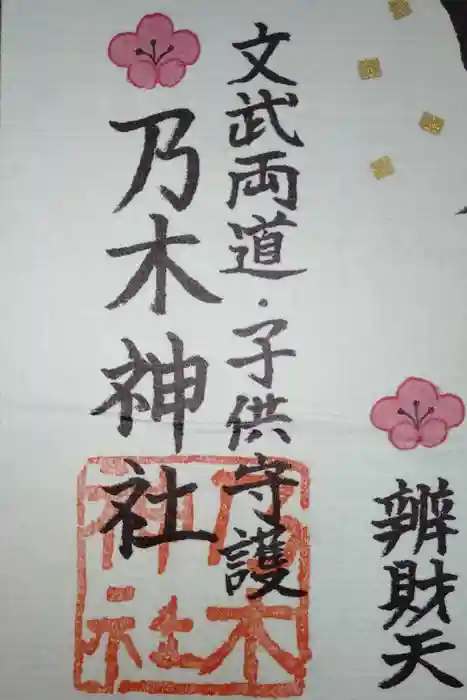 辨財天
文武両道・子供守護
乃木神社
乃木神社